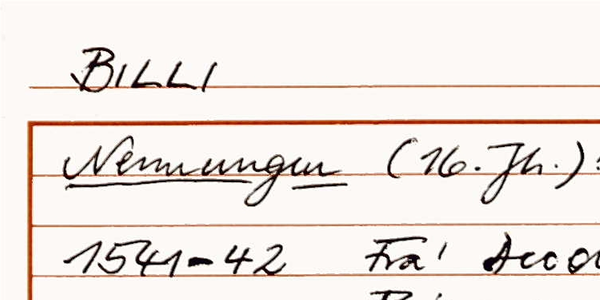 BILLI
Nennungen (16. Jh.):
1541-42 Fra'